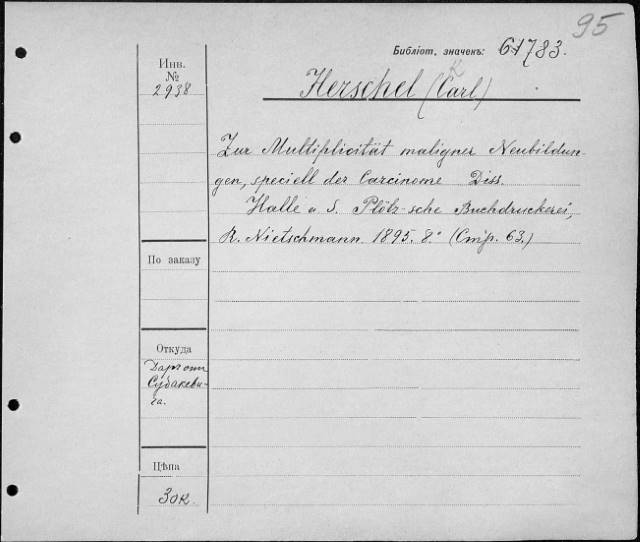 95
Библіот. значекъ: 61783.
Инв.
№
2938
Herschel (Carl)
K
Zur Multiplicität maligner Neubildun-
gen, speciell der Carcinome Diss.
Halle a. S. Plötz-sche Buchdruckerei,
R. Nietschmann 1895. 8.° (Стр. 63.)
По заказу
Откуда
Даръ отъ
Судакеви-
ча.
Цѣна
30к